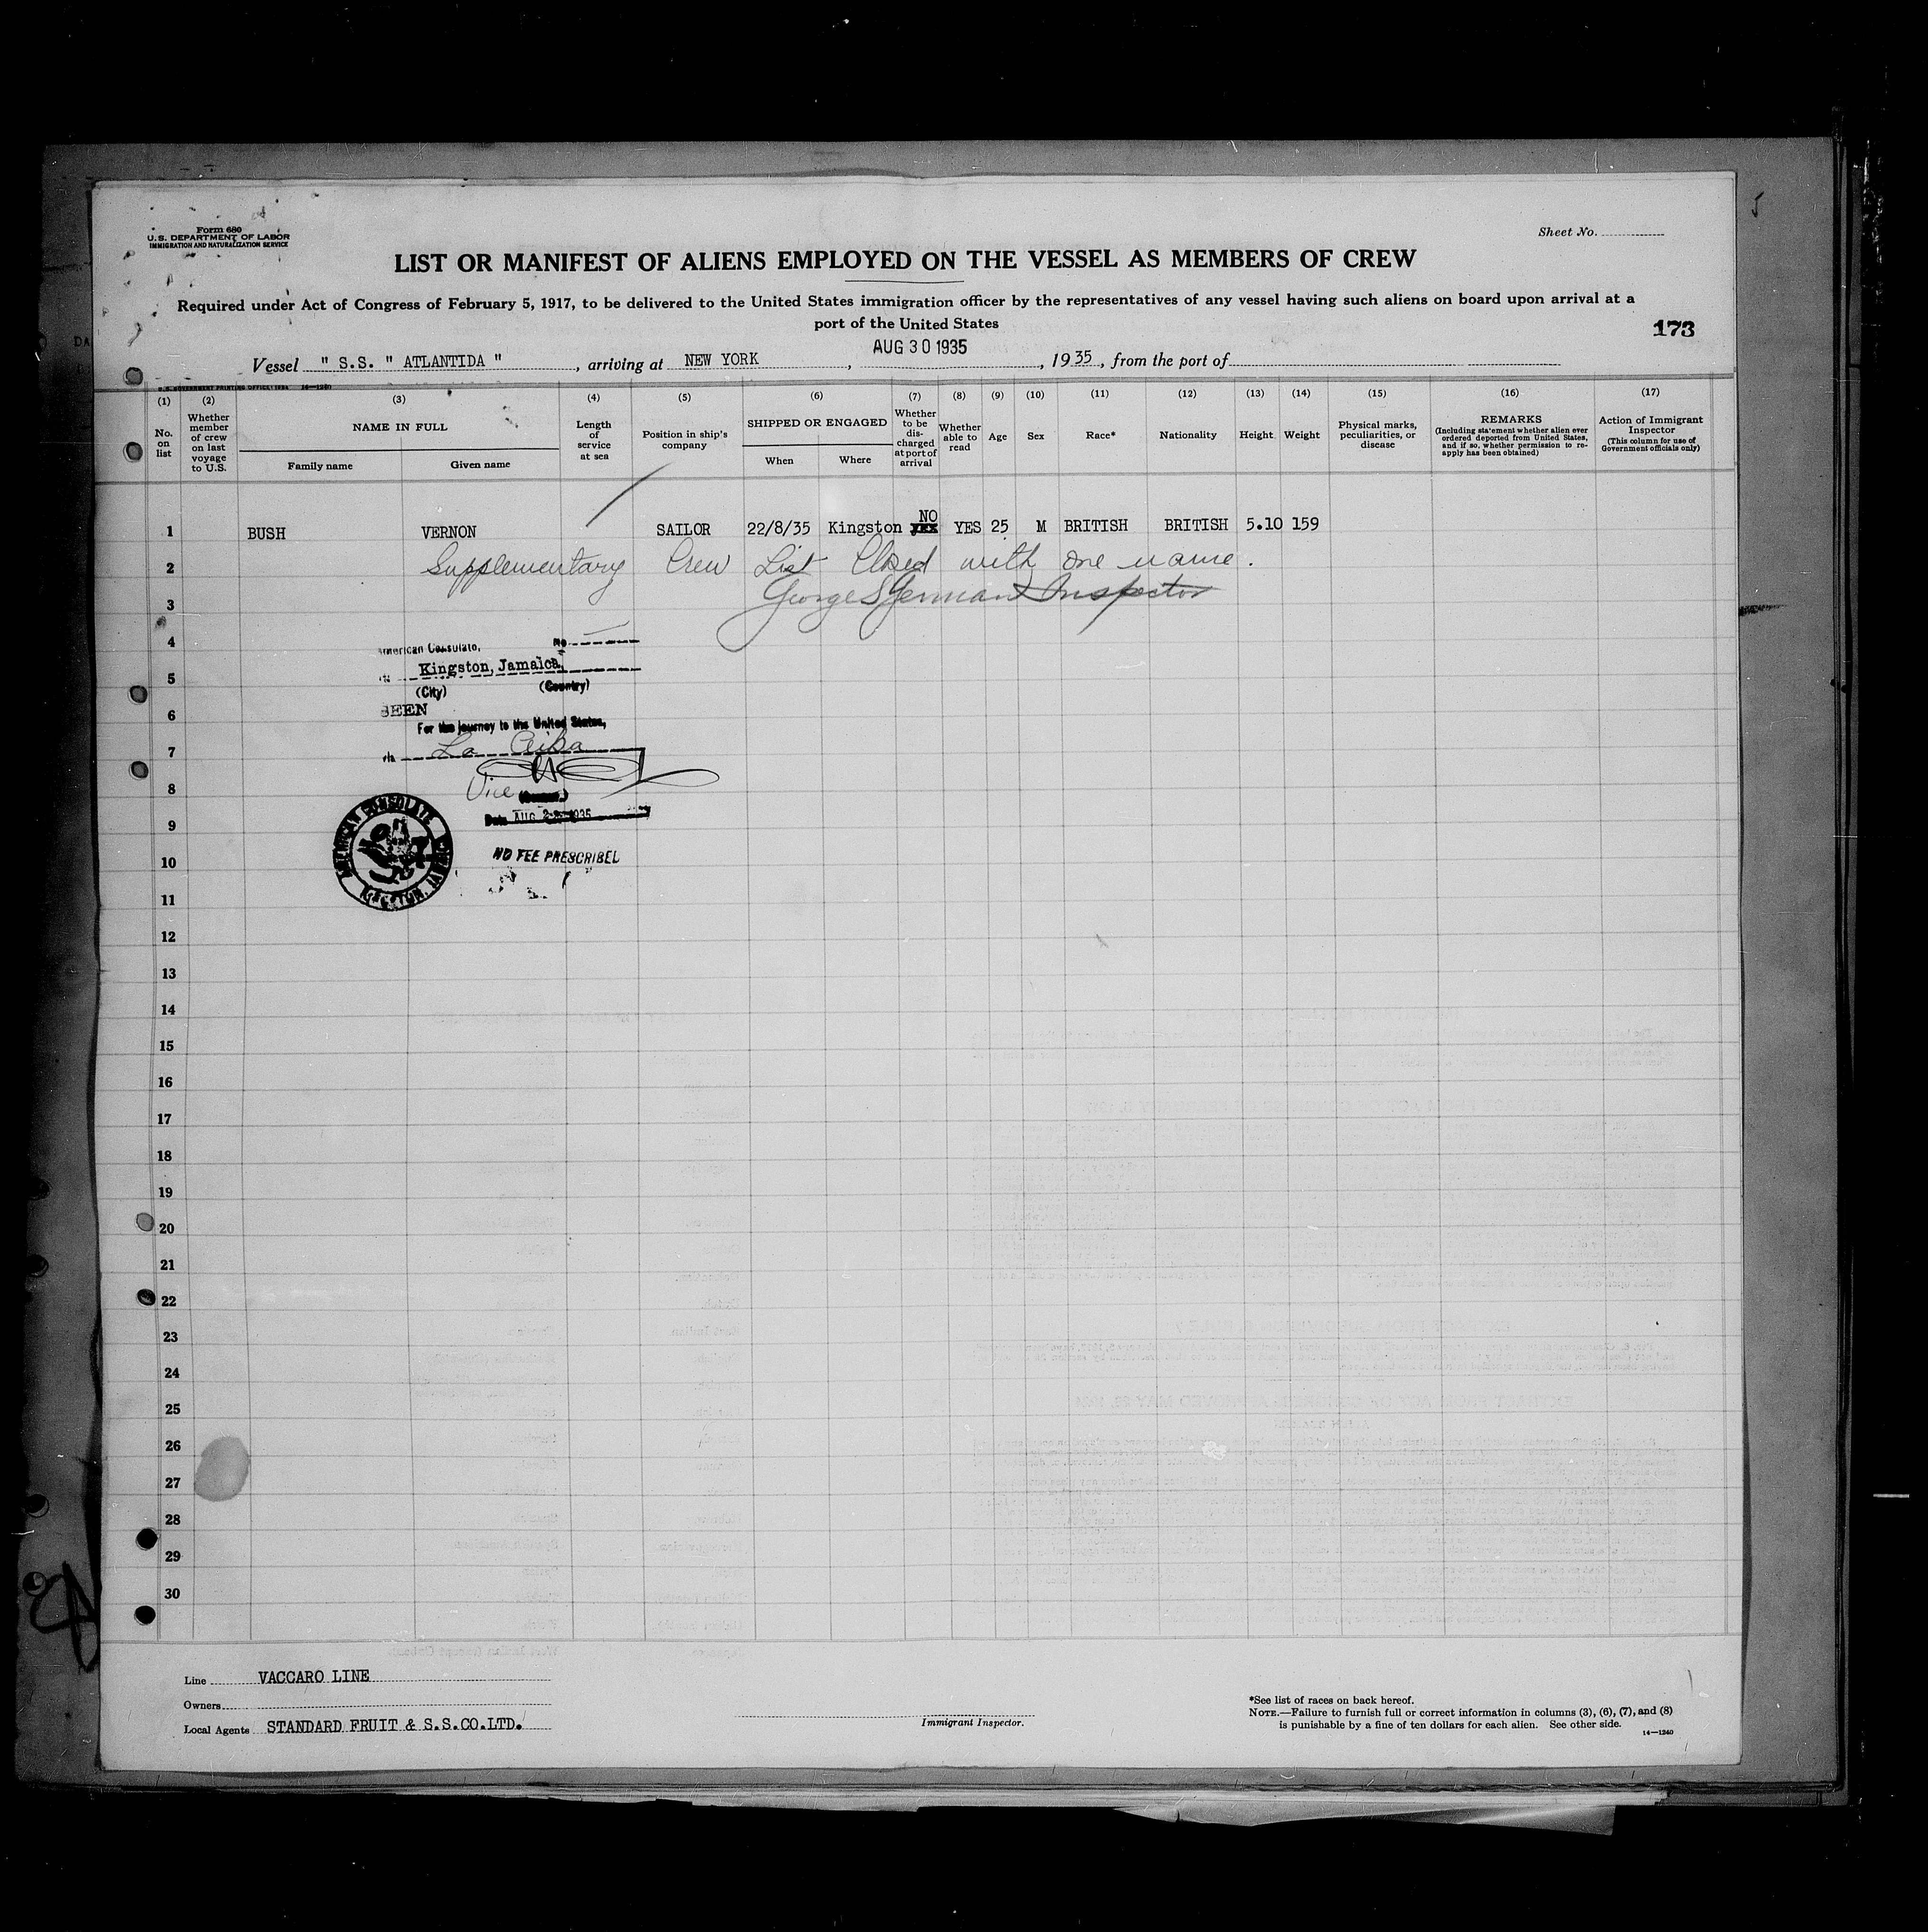 Form 680
U.S. DEPARTMENT OF LABOR
IMMIGRATION AND NATURALIZATION SERVICE
Sheet No.
LIST OR MANIFEST OF ALIENS EMPLOYED ON THE VESSEL AS MEMBERS OF CREW
Required under Act of Congress of February 5, 1917, to be delivered to the United States immigration officer by the representatives of any vessel having such aliens on board upon arrival at a
port of the United States
173
Vessel " S.S. " ATLANTIDA ", arriving at NEW YORK, AUG 30 1935, 1935, from the port of
U.S. GOVERNMENT PRINTING OFFICE: 1934 14—1240
(1) (2) (3) (4) (5) (6) (7) (8) (9) (10) (11) (12) (13) (14) (15) (16) (17)
No. on list
Whether member of crew on last voyage to U.S.
NAME IN FULL
Family name
Given name
Length of service at sea
Position in ship's company
SHIPPED OR ENGAGED
When
Where
Whether to be discharged at port of arrival
Whether able to read
Age
Sex
Race*
Nationality
Height
Weight
Physical marks, peculiarities, or disease
REMARKS
(Including statement whether alien ever ordered deported from United States, and if so, whether permission to re-apply has been obtained)
Action of Immigrant Inspector
(This column for use of Government officials only)
NO
1 BUSH VERNON SAILOR 22/8/35 Kingston YES 25 M BRITISH BRITISH 5.10 159
2 Supplementary Crew List Closed with one name.
3 George S German Inspector
4
American Consulate, No
Kingston, Jamaica,
5
(City) (Country)
SEEN
6
For the journey to the United States,
7
via La Ceiba
8
Vice
9
Date AUG 1935
10
NO FEE PRESCRIBED
AMERICAN CONSULATE
KINGSTON, JAMAICA
11
12
13
14
15
16
17
18
19
20
21
22
23
24
25
26
27
28
29
30
Line VACCARO LINE
Owners
Local Agents STANDARD FRUIT & S.S.CO.LTD.
Immigrant Inspector.
*See list of races on back hereof.
NOTE.—Failure to furnish full or correct information in columns (3), (6), (7), and (8)
is punishable by a fine of ten dollars for each alien. See other side.
14—1240